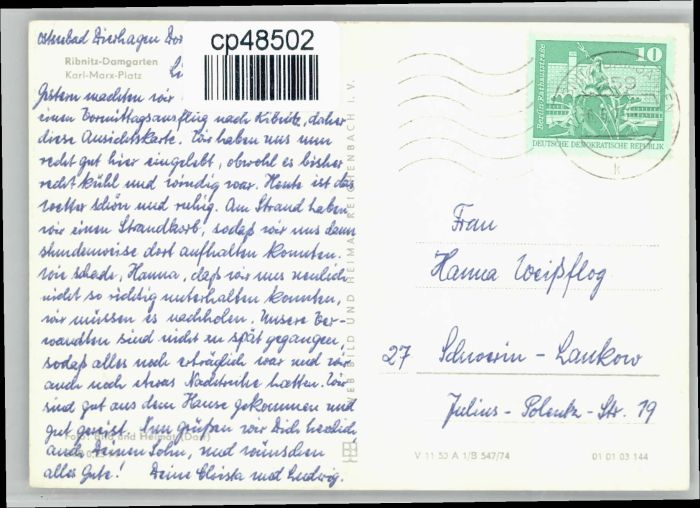 Ostseebad Dierhagen Dor
cp48502
Ribnitz-Damgarten
Karl-Marx-Platz
Gestern machten wir
einen Vormittagsausflug nach Ribnitz, daher
diese Ansichtskarte. Wir haben uns nun
recht gut hier eingelebt, obwohl es bisher
recht kühl und windig war. Heute ist das
Wetter schön und ruhig. Am Strand haben
wir einen Strandkorb, sodaß wir uns dann
stundenweise dort aufhalten konnten.
Wie schade, Hanna, daß wir uns neulich
nicht so richtig unterhalten konnten,
wir müssen es nachholen. Unsere Ver-
wandten sind nicht zu spät gegangen,
sodaß alles noch erträglich war und wir
auch noch etwas Nachtruhe hatten. Wir
sind gut aus dem Hause gekommen und
gut gereist. Nun grüßen wir Dich herzlich,
auch Deinen Sohn, und wünschen
alles Gute! Deine Christa und Ludwig.
Foto: Bild und Heimat (Darr)
VEB BILD UND HEIMAT REICHENBACH I. V.
10
Berlin, Rathausstraße
DEUTSCHE DEMOKRATISCHE REPUBLIK
k
Frau
Hanna Weißflog
27 Schwerin - Lankow
Julius-Polentz-Str. 19
V 11 50 A 1/B 547/74
01 01 03 144